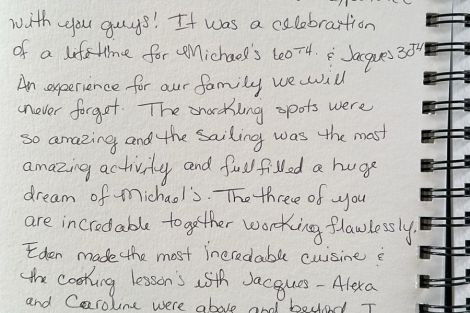 with you guys! It was a celebration
of a lifetime for Michael's 60TH. & Jacques 30TH
An experience for our family we will
never forget. The snorkling spots were
so amazing and the sailing was the most
amazing activity and fullfilled a huge
dream of Michael's. The three of you
are incredable together working flawlessly.
Eden made the most incredable cuisine &
the cooking lesson's with Jacques - Alexa
and Caroline were above and beyond I